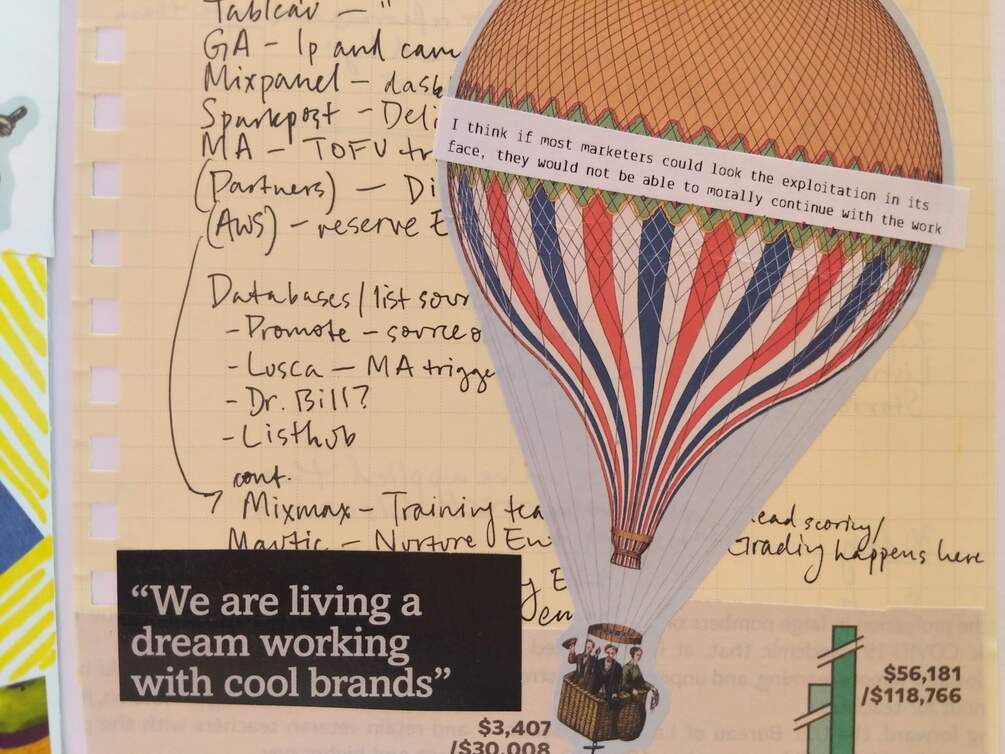 Tableau – "
GA – lp and cam
Mixpanel – dash
Sparkpost – Deli
MA – TOFU tr
(Partners) – Di
(AWS) – reserve E
I think if most marketers could look the exploitation in its
face, they would not be able to morally continue with the work
Databases/list sour
- Promote – source o
- Lusca – MA trigge
- Dr. Bill?
- Listhub
cont.
Mixmax – Training tea
Mautic – Nurture En
ead scoring/
Grading happens here
“We are living a
dream working
with cool brands”
$56,181
/$118,766
$3,407
/$30,008